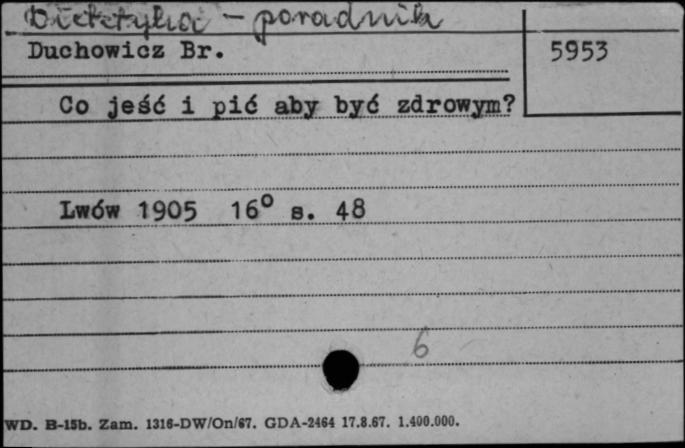 Dietetyka - poradnik
Duchowicz Br.
5953
Co jeść i pić aby być zdrowym?
Lwów 1905 16° s. 48
6
WD. B-15b. Zam. 1316-DW/On/67. GDA-2464 17.8.67. 1.400.000.